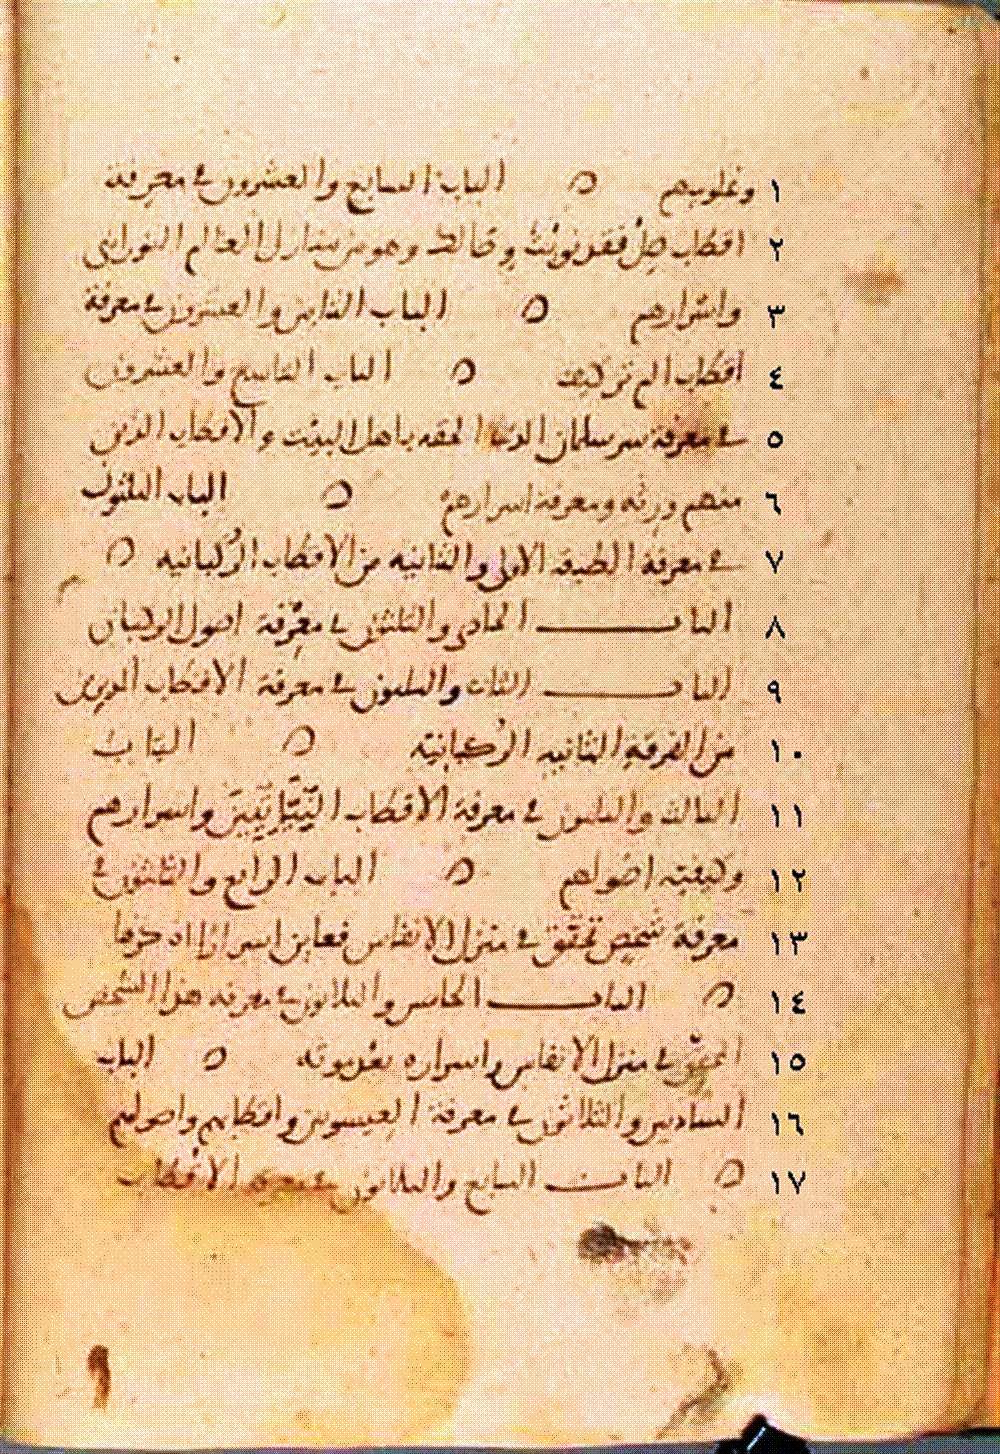 ١ وعلومهم ه الباب السابع والعشرون في معرفة
٢ اقطاب صل فقد نويت وصالك وهو من منازل العالم النوراني
٣ واسرارهم ه الباب الثامن والعشرون في معرفة
٤ اقطاب الم تر كيف ه الباب التاسع والعشرون
٥ في معرفة سر سلمان الذي الحقه باهل البيت والاقطاب الذين
٦ منهم ورثه ومعرفة اسرارهم ه الباب الثلثون
٧ في معرفة الطبقة الاولى والثانيه من الاقطاب الركبانيه ه
٨ الباب الحادي والثلثون في معرفة اصول الركبان
٩ الباب الثاني والثلثون في معرفة الاقطاب المديرين
١٠ من الفرقة الثانيه الركبانية ه الباب
١١ الثالث والثلثون في معرفة الاقطاب النياتيين واسرارهم
١٢ وكيفية اصولهم ه الباب الرابع والثلثون في
١٣ معرفة شخص تحقق في منزل الانفاس فعاين اسرارا اذكرها
١٤ ه الباب الخامس والثلاثون في معرفة هذا الشخص
١٥ المحقق في منزل الانفاس واسراره بعد موته ه الباب
١٦ السادس والثلاثون في معرفة العيسويين واقطابهم واصولهم
١٧ ه الباب السابع والثلاثون في معرفة الاقطاب